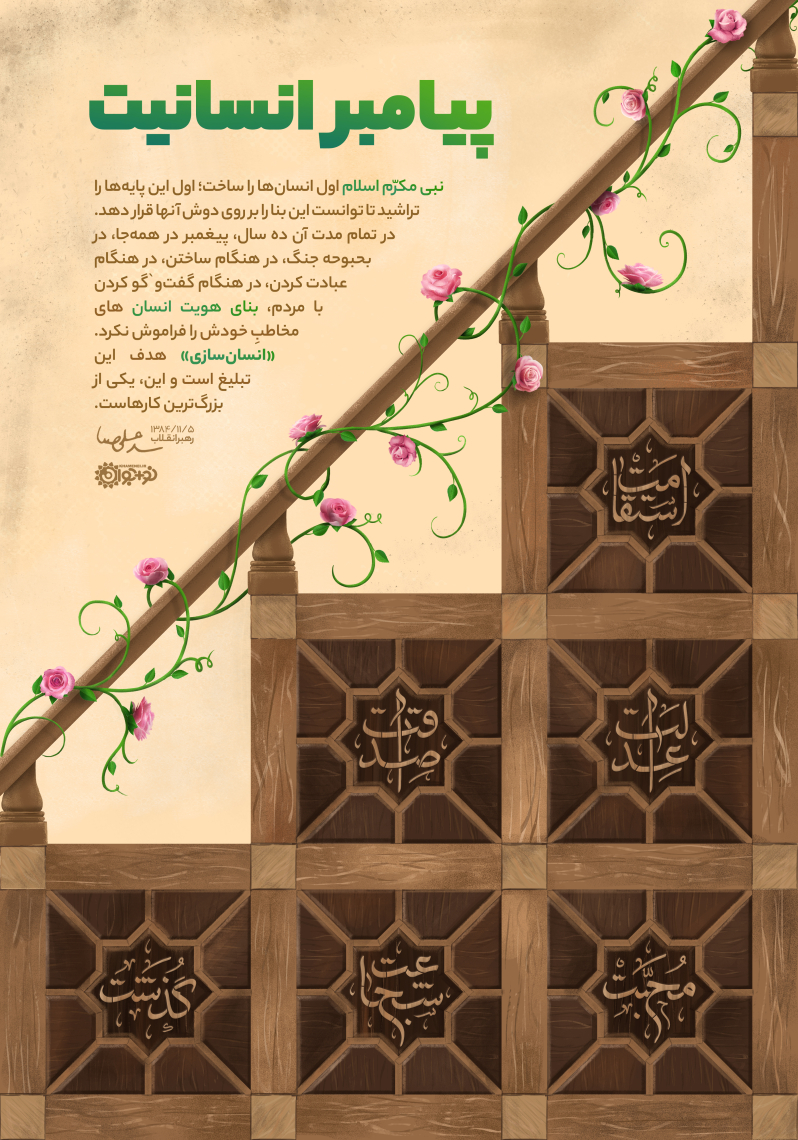 پیامبر انسانیت
نبی مکرّم اسلام اول انسان‌ها را ساخت؛ اول این پایه‌ها را
تراشید تا توانست این بنا را بر روی دوش آنها قرار دهد.
در تمام مدت آن ده سال، پیغمبر در همه‌جا، در
بحبوحه جنگ، در هنگام ساختن، در هنگام
عبادت کردن، در هنگام گفت‌و`گو کردن
با مردم، بنای هویت انسان های
مخاطبِ خودش را فراموش نکرد.
«انسان‌سازی» هدف این
تبلیغ است و این، یکی از
بزرگ‌ترین کارهاست.
۱۳۸۴/۱۱/۵
رهبر انقلاب
نوجوان
استقامت
صداقت
عدالت
گذشت
شجاعت
محبّت